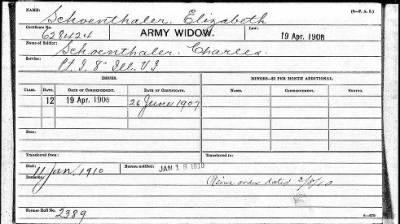 NAME: Schoenthaler, Elizabeth (3-P.A.S.)
Certificate No. 628424 ARMY WIDOW. 19 Apr. 1908
Name of Soldier: Schoenthaler, Charles
Service: Pt. I. 8" Ill. V. I.
ISSUE. MINORS—$2 PER MONTH ADDITIONAL.
CLASS. RATE. DATE OF COMMENCEMENT. DATE OF CERTIFICATE. COMMENCING. ENDING.
12 19 Apr. 1908 26 June 1907
Transferred from: Transferred to:
Died: 11 Jan. 1910 Bureau notified: JAN 18 1910
Remarks: Reimb order dated 3/8/10
Former Roll No. 2389